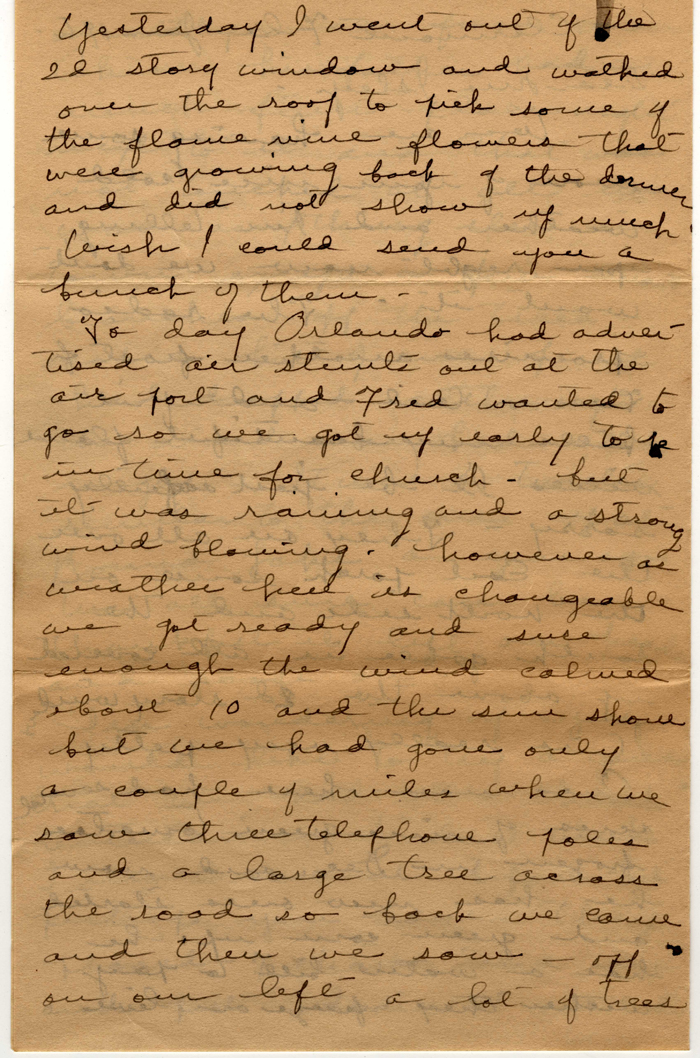 Yesterday I went out of the
2d story window and walked
over the roof to pick some of
the flame vine flowers that
were growing back of the dormer
and did not show up much.
Wish I could send you a
bunch of them -
To day Orlando had adver-
tised air stunts out at the
air port and Fred wanted to
go so we got up early to be
in time for church - but
it was raining and a strong
wind blowing. however as
weather here is changeable
we got ready and sure
enough the wind calmed
about 10 and the sun shone
but we had gone only
a couple of miles when we
saw three telephone poles
and a large tree across
the road so back we came
and then we saw - off
on our left a lot of trees